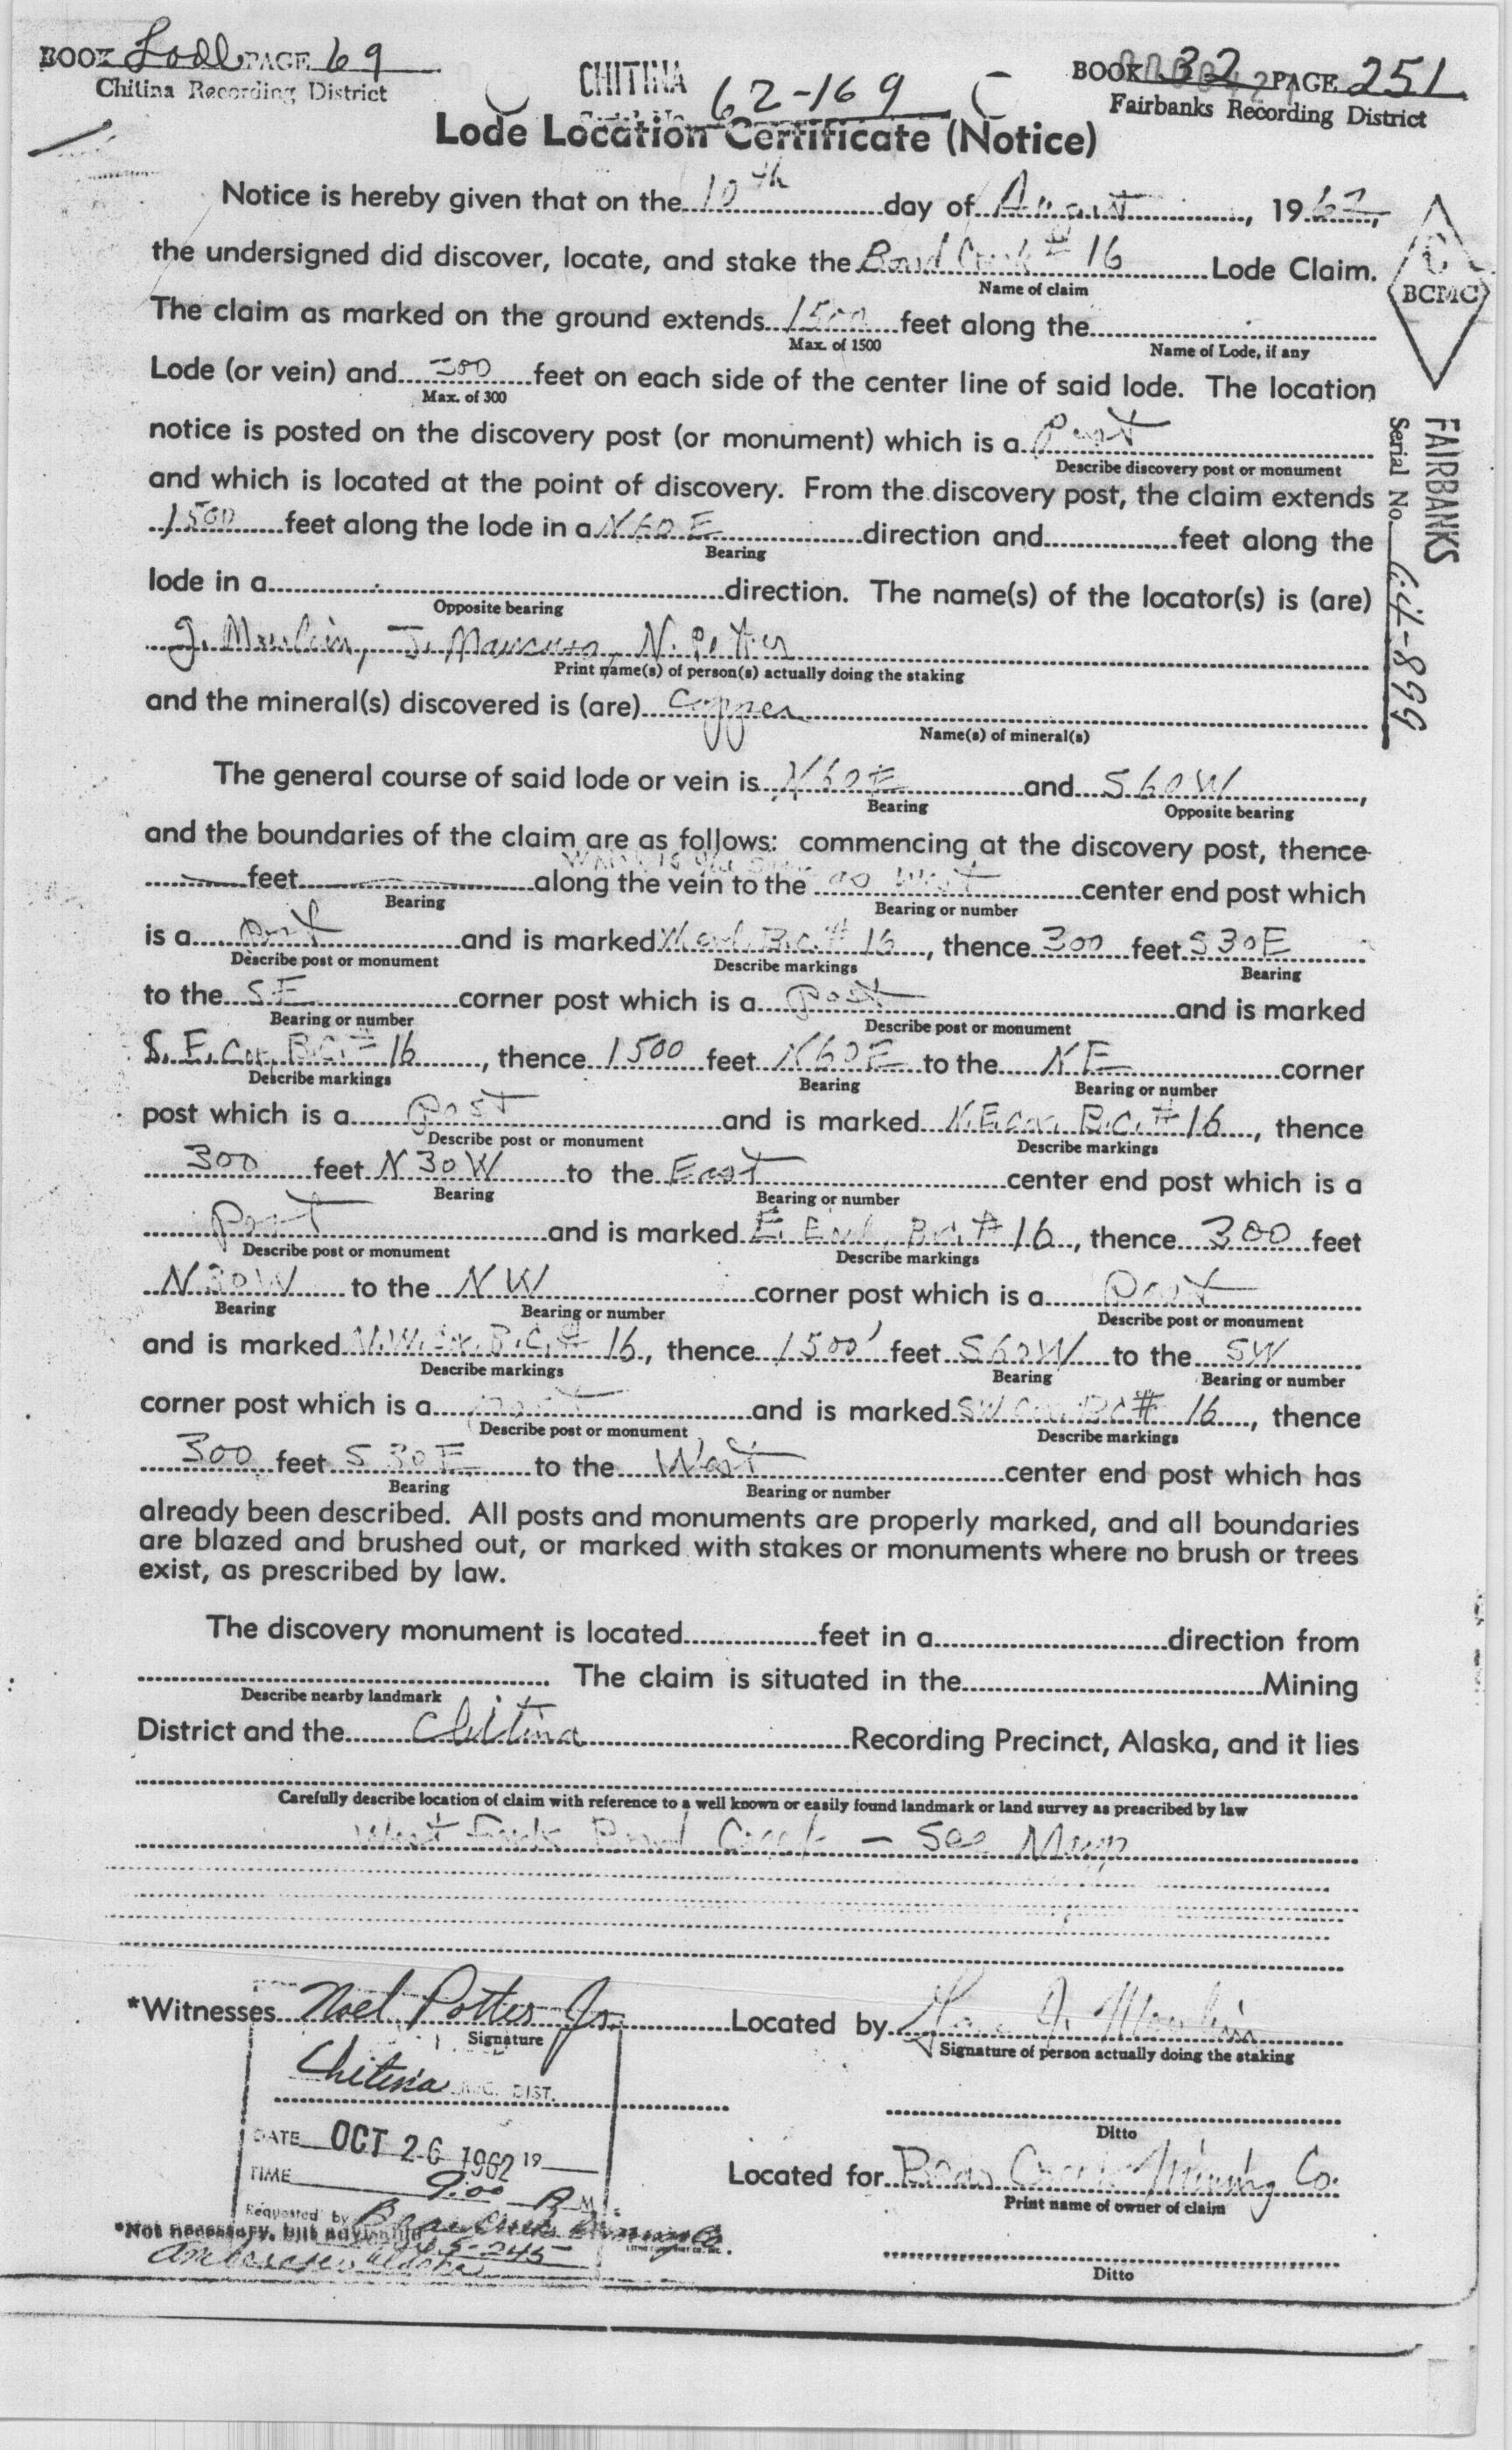 BOOK Lode PAGE 69
Chitina Recording District
CHITINA
62-169
BOOK 32 PAGE 251
Fairbanks Recording District
Lode Location Certificate (Notice)
Notice is hereby given that on the 10th day of August, 1962,
the undersigned did discover, locate, and stake the Bond Creek # 16 Lode Claim.
Name of claim
BCMC
The claim as marked on the ground extends 1500 feet along the
Max. of 1500 Name of Lode, if any
Lode (or vein) and 300 feet on each side of the center line of said lode. The location
Max. of 300
notice is posted on the discovery post (or monument) which is a Post
Describe discovery post or monument
FAIRBANKS
Serial No. 64-899
and which is located at the point of discovery. From the discovery post, the claim extends
1500 feet along the lode in a N60E direction and feet along the
Bearing
lode in a direction. The name(s) of the locator(s) is (are)
Opposite bearing
J. Moulein, J. Mancuso, N. Potter
Print name(s) of person(s) actually doing the staking
and the mineral(s) discovered is (are) Copper
Name(s) of mineral(s)
The general course of said lode or vein is N60E and S60W,
Bearing Opposite bearing
and the boundaries of the claim are as follows: commencing at the discovery post, thence
which is the same
feet along the vein to the as West center end post which
Bearing Bearing or number
is a post and is marked W. end. B.C. # 16, thence 300 feet S30E
Describe post or monument Describe markings Bearing
to the SE corner post which is a post and is marked
Bearing or number Describe post or monument
S.E. Cor. B.C. # 16, thence 1500 feet N60E to the NE corner
Describe markings Bearing Bearing or number
post which is a post and is marked N.E. cor. B.C. # 16, thence
Describe post or monument Describe markings
300 feet N30W to the East center end post which is a
Bearing Bearing or number
post and is marked E. End. B.C. # 16, thence 300 feet
Describe post or monument Describe markings
N30W to the NW corner post which is a Post
Bearing Bearing or number Describe post or monument
and is marked N.W. Cor. B.C. # 16, thence 1500' feet S60W to the SW
Describe markings Bearing Bearing or number
corner post which is a post and is marked SW Cor. BC # 16, thence
Describe post or monument Describe markings
300 feet S30E to the West center end post which has
Bearing Bearing or number
already been described. All posts and monuments are properly marked, and all boundaries
are blazed and brushed out, or marked with stakes or monuments where no brush or trees
exist, as prescribed by law.
The discovery monument is located feet in a direction from
The claim is situated in the Mining
Describe nearby landmark
District and the Chitina Recording Precinct, Alaska, and it lies
Carefully describe location of claim with reference to a well known or easily found landmark or land survey as prescribed by law
West Fork Bond Creek - See Map
*Witnesses Noel Potter Jr. Located by J. Moulein
Signature Signature of person actually doing the staking
Chitina REC. DIST.
Ditto
DATE OCT 26 1962 19
TIME 9:00 A M
Located for Bear Creek Mining Co.
Print name of owner of claim
Requested by Bear Creek Mining Co.
*Not necessary, but advisable
Ditto